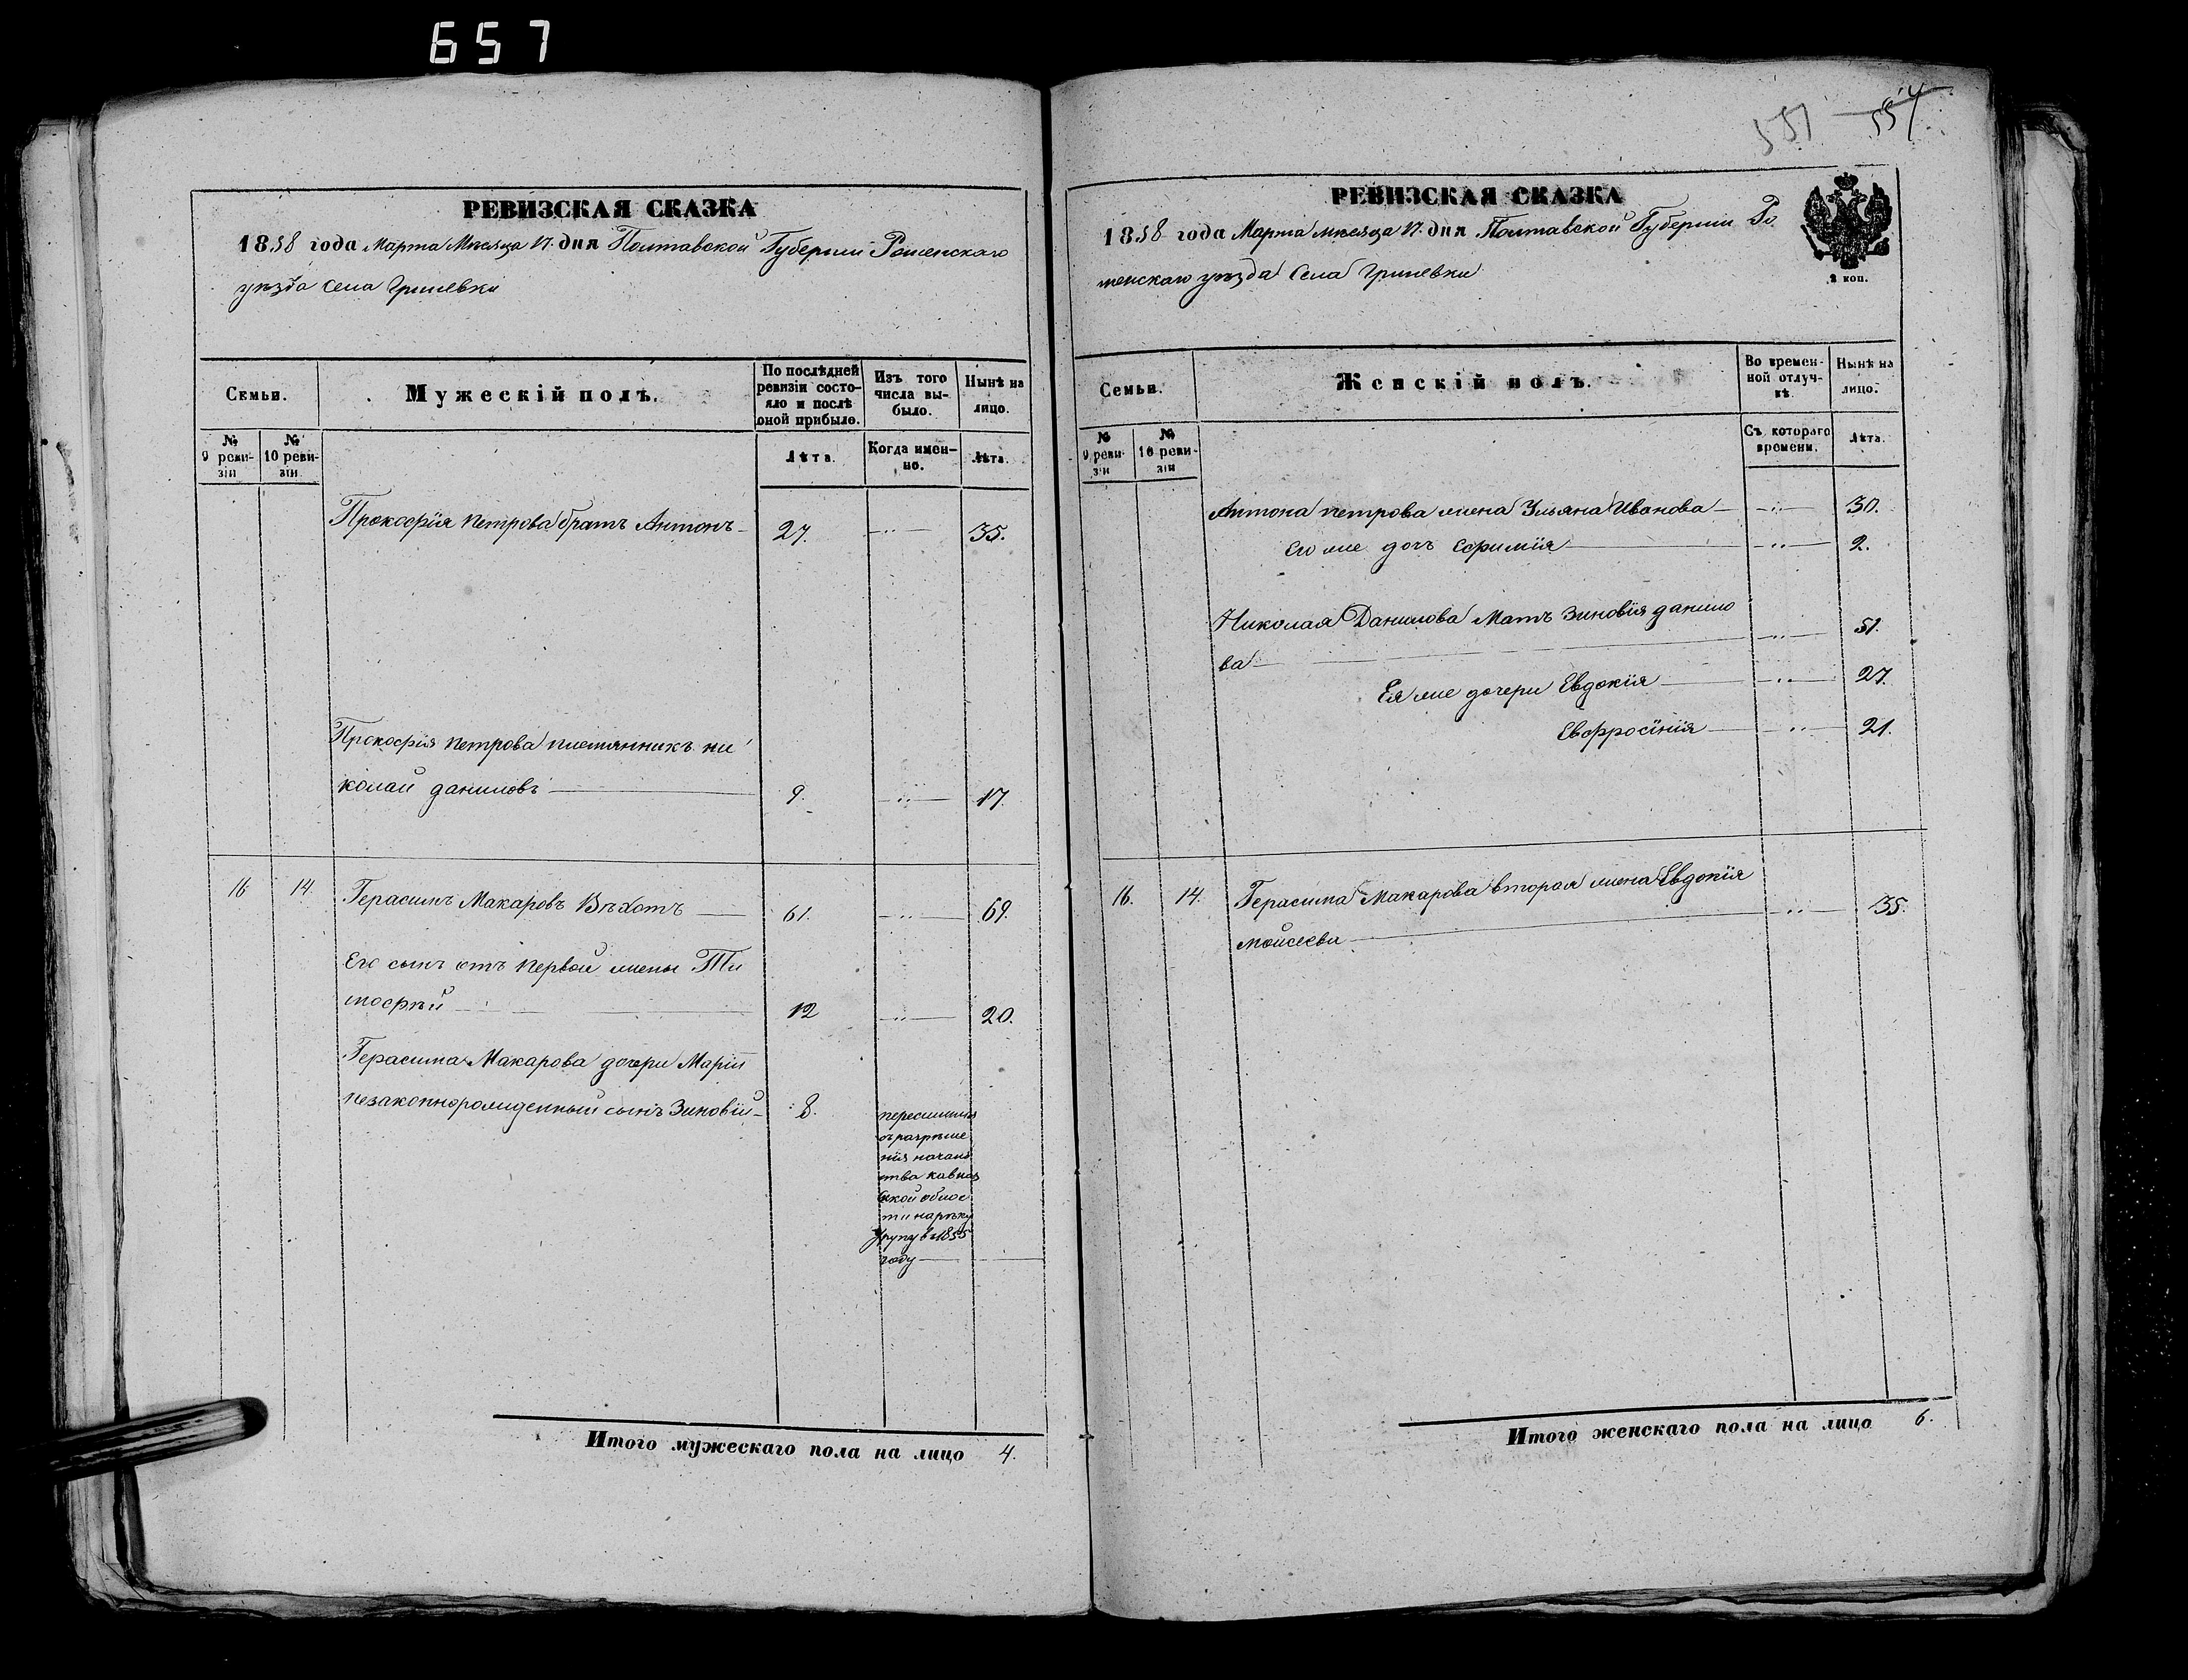 657
551 554
РЕВИЗСКАЯ СКАЗКА
1858 года Марта Месяца 17. дня Полтавской Губернии Роменскаго
уезда села Гриневки
Семьи.
Мужескій полъ.
По послѣдней
ревизіи состо-
яло и послѣ
оной прибыло.
Изъ того
числа вы-
было.
Нынѣ на
лицо.
№
9 реви-
зіи
№
10 реви-
зіи
Лѣта.
Когда имен-
но.
Лѣта.
Прокофія Петрова братъ Антонъ 27. 35.
Прокофія Петрова племянникъ ни
колай даниловъ 9. 17
16 14 Герасимъ Макаровъ Вѣхотъ 61. 69.
Его сынъ отъ первой жены Ти
мофѣй 12 20.
Герасима Макарова дочери Маріи
незаконнорожденный сынъ Зиновій 8.
переселился
съ разрѣше
нія началь
ства кавказ
ской облас
ти на рѣку
Урупу в 1855
году
Итого мужескаго пола на лицо 4.
РЕВИЗСКАЯ СКАЗКА
1858 года Марта месяца 17. дня Полтавской Губернии Ро
менскаго уезда Села Гриневки
2 коп.
Семьи.
Женскій полъ.
Во времен-
ной отлуч-
кѣ.
Нынѣ на
лицо.
№
9 реви-
зіи
№
10 реви-
зіи
Съ котораго
времени.
Лѣта.
Антона петрова жена Ульяна Иванова 30.
Его же дочь Ефимія 2.
Николая Данилова Мать Зиновія данило
ва 51.
Ея же дочери Евдокія 27.
Евфросінія 21.
16. 14. Герасима Макарова вторая жена Евдокія
Моисеева 35.
Итого женскаго пола на лицо 6.